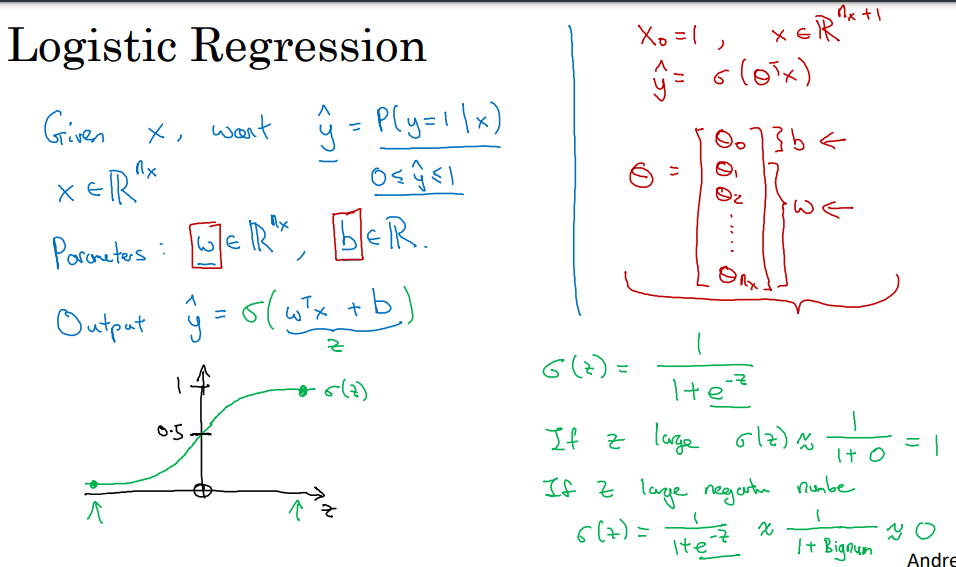 Logistic Regression
Given x, want ŷ = P(y=1|x)
x ∈ ℝ^{n_x}
0 ≤ ŷ ≤ 1
Parameters: w ∈ ℝ^{n_x}, b ∈ ℝ.
Output ŷ = σ(w^T x + b)
z
1
σ(z)
0.5
z
x_0 = 1, x ∈ ℝ^{n_x+1}
ŷ = σ(θ^T x)
θ = [θ_0 θ_1 θ_2 ⋮ θ_{n_x}] } b ← } w ←
σ(z) = 1/(1+e^{-z})
If z large σ(z) ≈ 1/(1+0) = 1
If z large negative number
σ(z) = 1/(1+e^{-z}) ≈ 1/(1+Bignum) ≈ 0
Andre